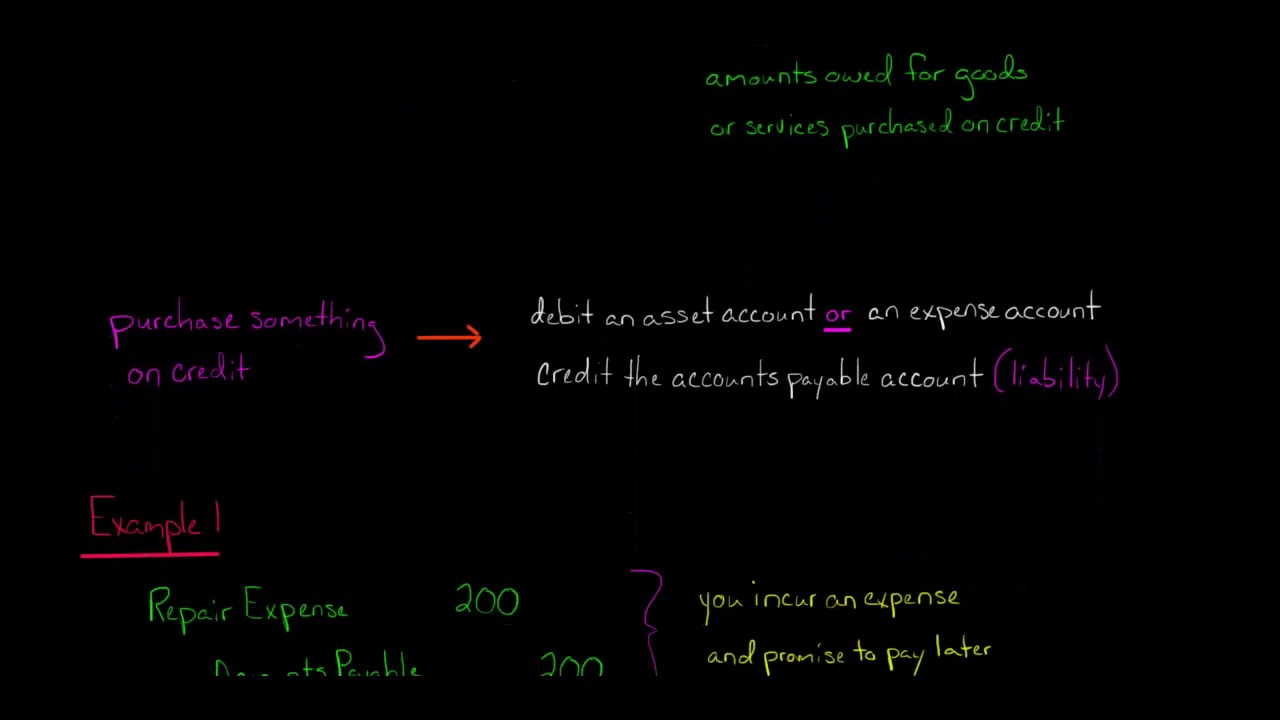 amounts owed for goods
or services purchased on credit
purchase something
on credit
debit an asset account or an expense account
credit the accounts payable account (liability)
Example 1
Repair Expense 200
you incur an expense
and promise to pay later
Payable 200